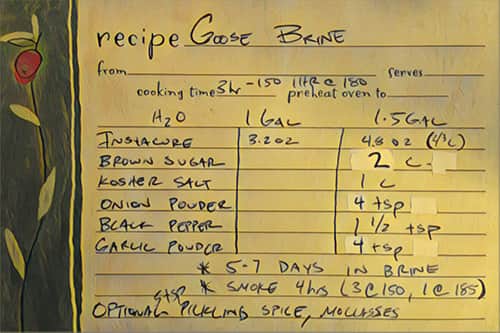 recipe Goose Brine
from serves
cooking time 3hr -150 1HR @ 180 preheat oven to
H2O 1 GAL 1.5 GAL
INSTACURE 3.2 oz 4.8 oz (4/3 C)
BROWN SUGAR 2 C
KOSHER SALT 1 C
ONION POWDER 4 tsp
BLACK PEPPER 1 1/2 tsp
GARLIC POWDER 4 tsp
* 5-7 DAYS IN BRINE
* SMOKE 4hrs (3 @ 150, 1 @ 185)
OPTIONAL PICKLING SPICE, MOLLASSES